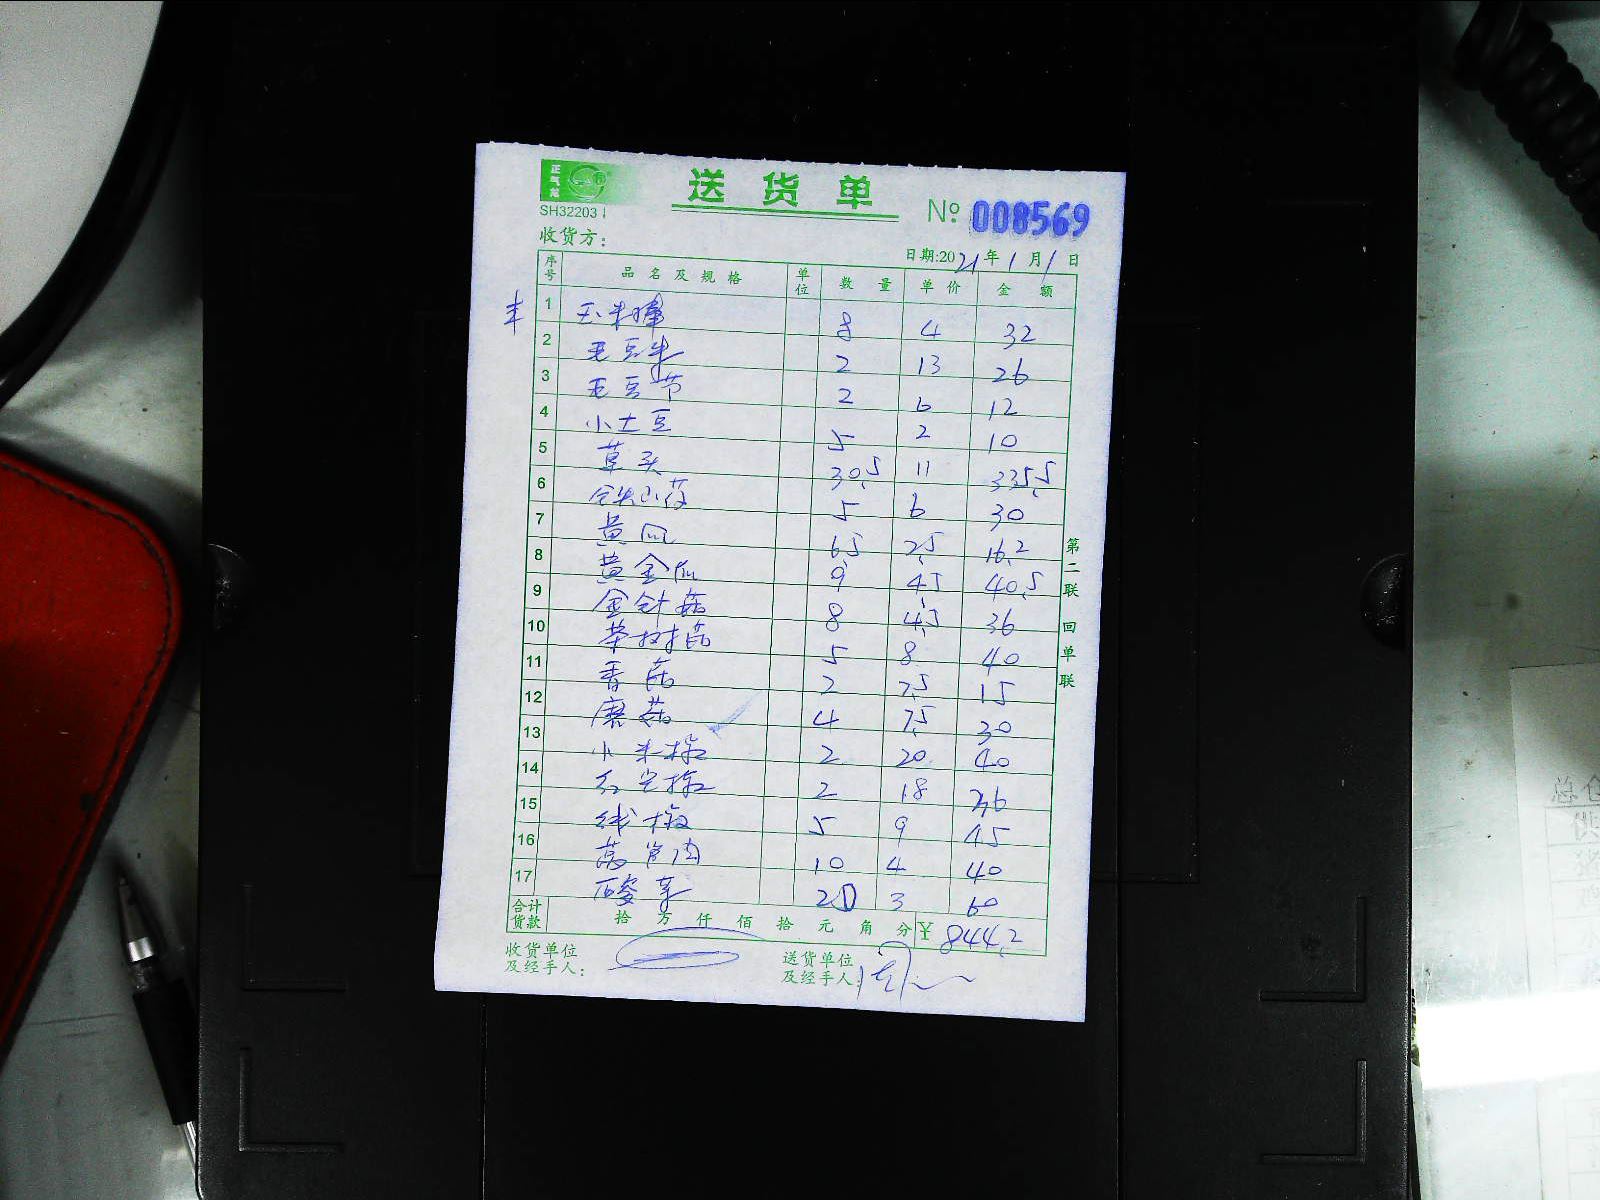 正气龙
送货单
SH32203
№ 008569
收货方：
日期:2021年1月1日
序号 品名及规格 单位 数量 单价 金额
丰
1 玉米棒 8 4 32
2 毛豆米 2 13 26
3 毛豆节 2 6 12
4 小土豆 5 2 10
5 草头 30.5 11 335.5
6 铁山药 5 6 30
7 黄瓜 6.5 2.5 16.2
8 黄金瓜 9 4.5 40.5
9 金针菇 8 4.5 36
10 茶树菇 5 8 40
11 香菇 2 7.5 15
12 磨菇 4 7.5 30
13 小米椒 2 20 40
14 红尖椒 2 18 36
15 线椒 5 9 45
16 10 4 40
17 20 3 60
合计货款 拾 万 仟 佰 拾 元 角 分 ¥844.2
收货单位及经手人：
送货单位及经手人：
第二联 回单联
总仓
供